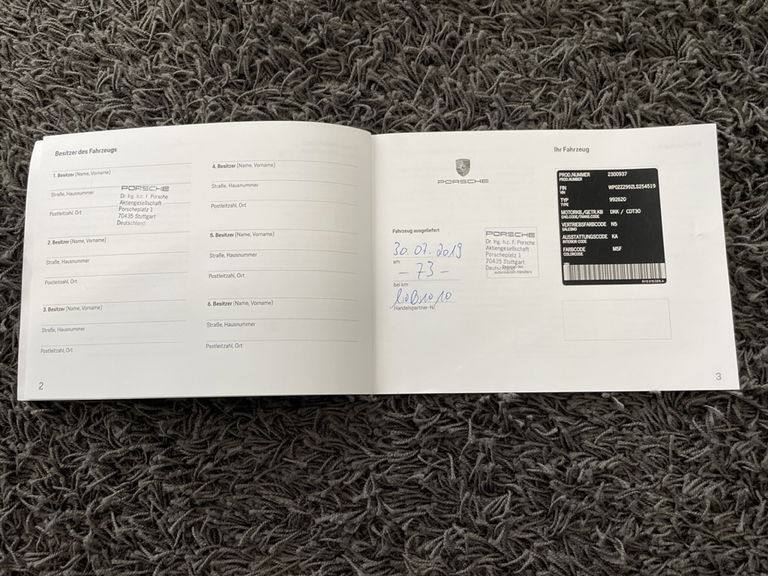 Besitzer des Fahrzeugs
1. Besitzer (Name, Vorname)
Straße, Hausnummer
Postleitzahl, Ort
PORSCHE
Dr. Ing. h.c. F. Porsche
Aktiengesellschaft
Porscheplatz 1
70435 Stuttgart
Deutschland
2. Besitzer (Name, Vorname)
Straße, Hausnummer
Postleitzahl, Ort
3. Besitzer (Name, Vorname)
Straße, Hausnummer
Postleitzahl, Ort
4. Besitzer (Name, Vorname)
Straße, Hausnummer
Postleitzahl, Ort
5. Besitzer (Name, Vorname)
Straße, Hausnummer
Postleitzahl, Ort
6. Besitzer (Name, Vorname)
Straße, Hausnummer
Postleitzahl, Ort
2
PORSCHE
Fahrzeug ausgeliefert
30.07.2019
am
- 73 -
bei km
Handelspartner-Nr.
PORSCHE
Dr. Ing. h.c. F. Porsche
Aktiengesellschaft
Porscheplatz 1
70435 Stuttgart
Deutschland
autorisierten Händlers
Ihr Fahrzeug
PROD.NUMMER 2300937
PROD.NUMBER
FIN WP0ZZZ99ZLS254519
VIN
TYP 992620
TYPE
MOTORKB/GETR.KB DKK / CDT30
ENG.CODE/TRANS.CODE
VERTRIEBSFARBCODE N5
SALESNO
AUSSTATTUNGSCODE KA
INTERIOR CODE
FARBCODE M5F
COLORCODE
3